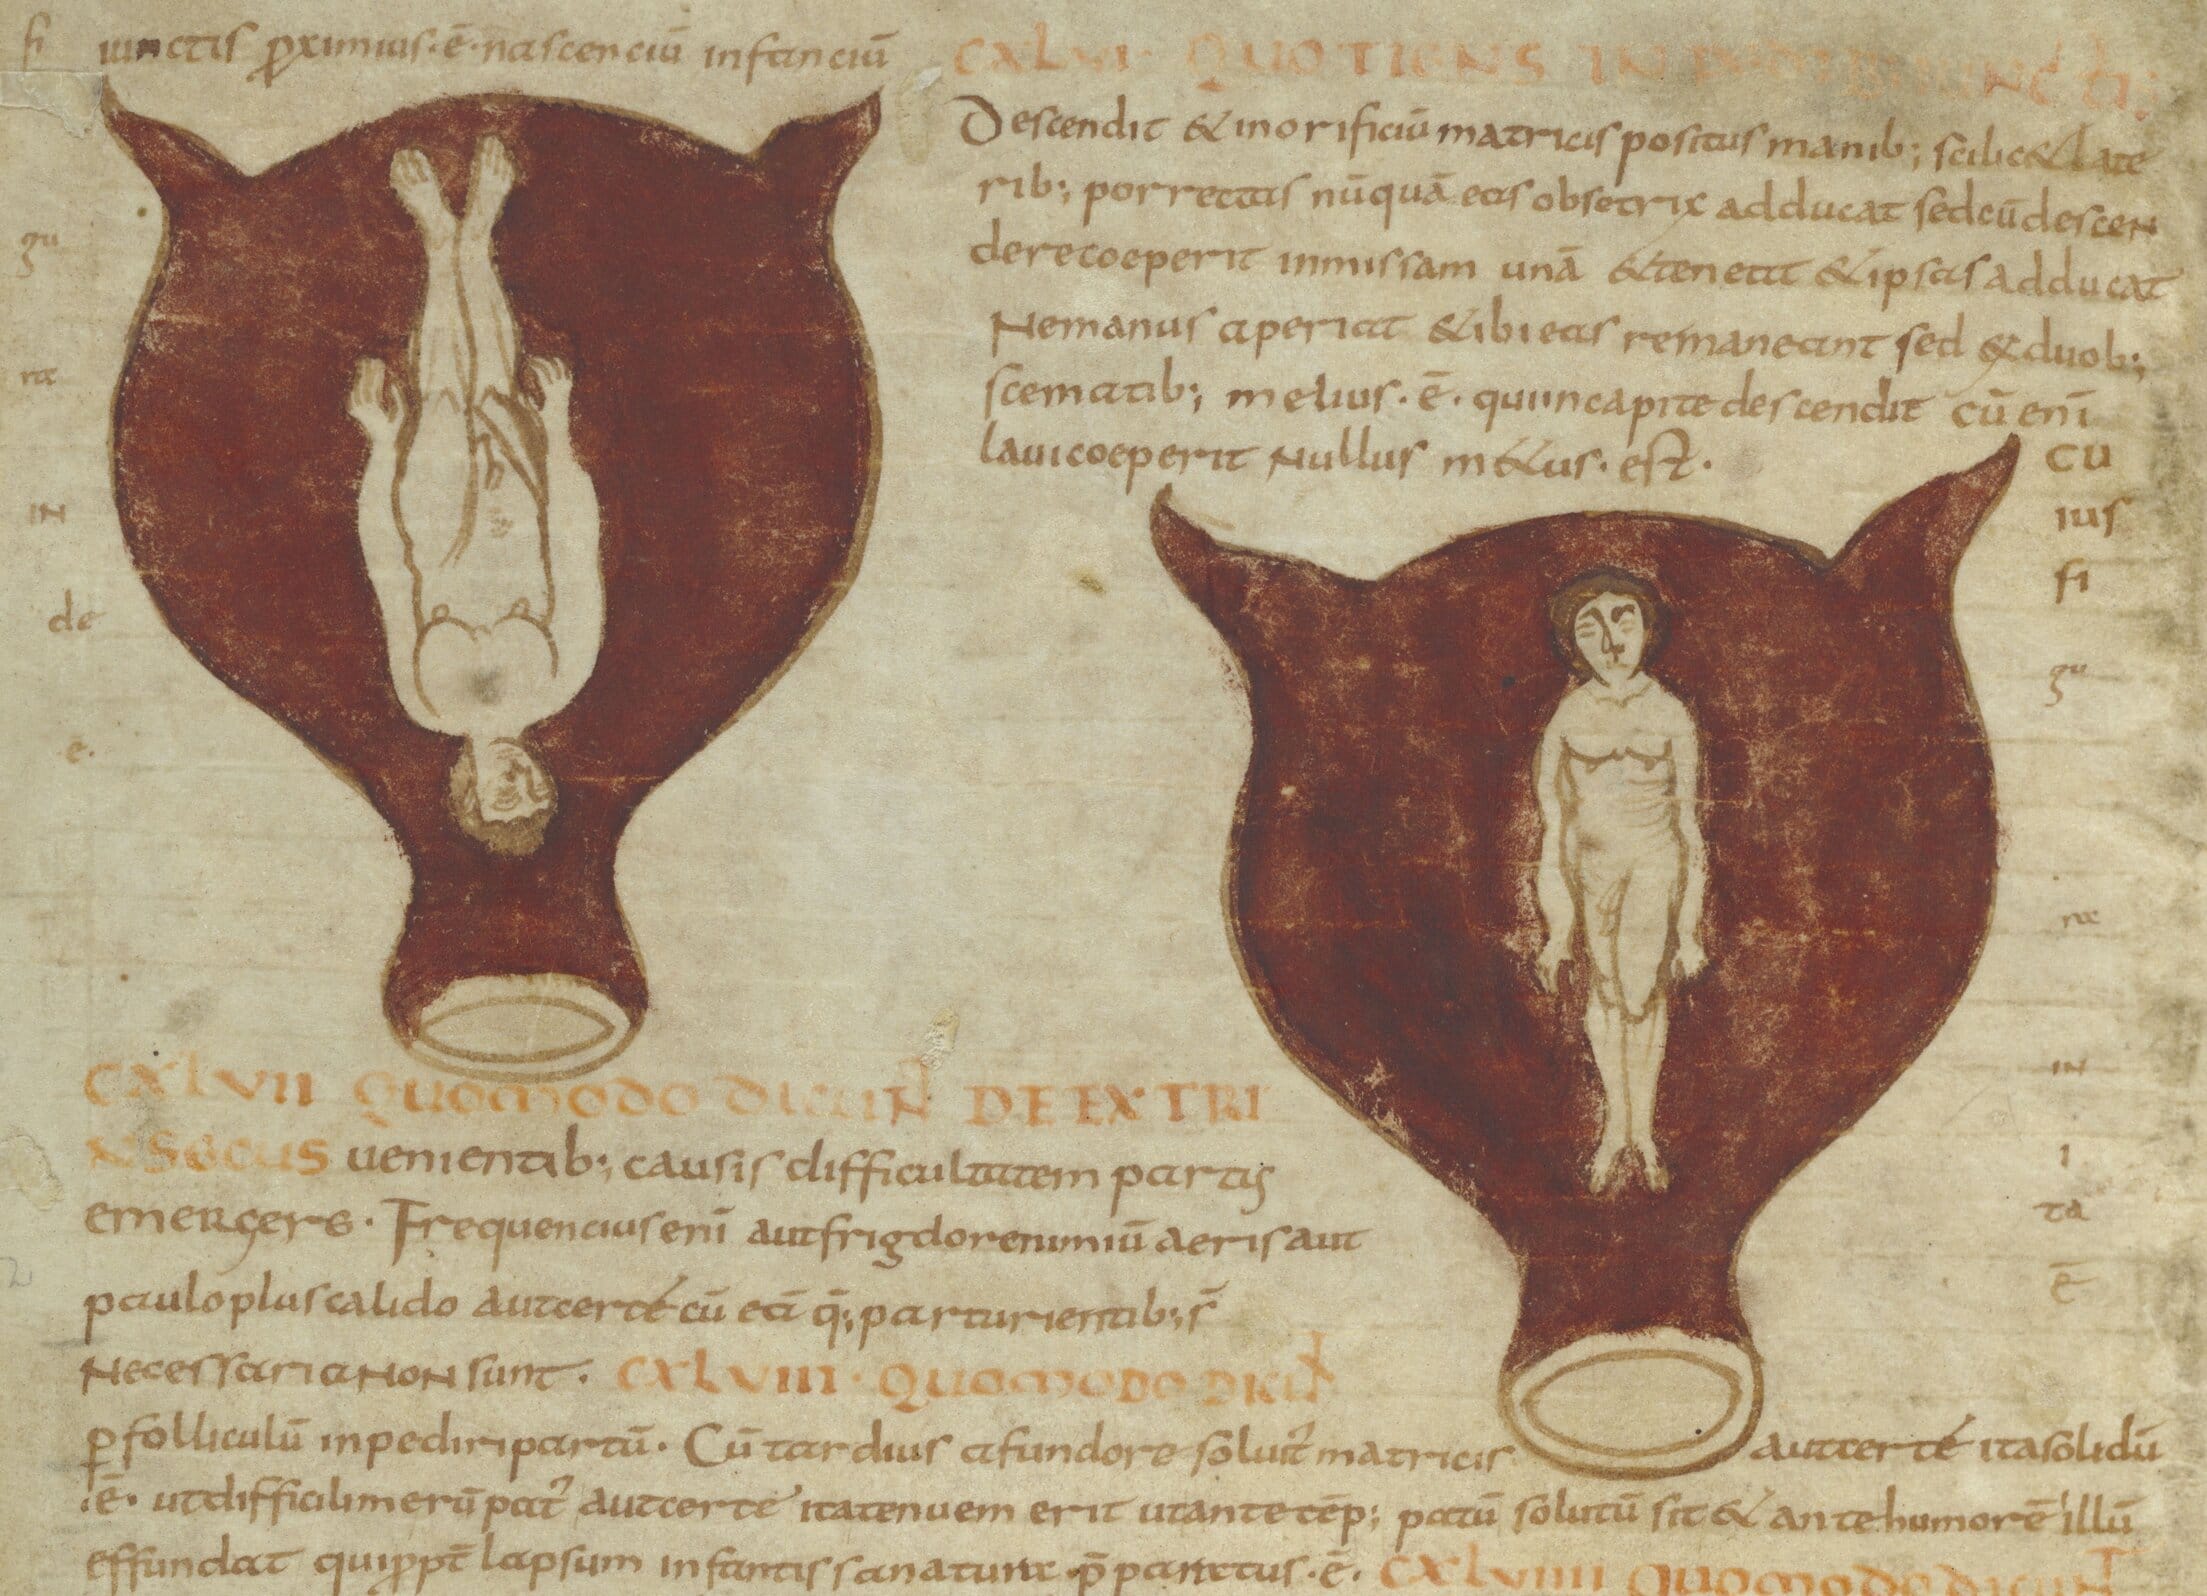 fi
iunctis ꝓximius·ē·nascenciū infanciū
gu
ra
IN
de
ē·
CXLVI· QUOTIENS IN IUNCTI;
Descendit & inorificiū matricis positus manib; scilic& late
rib; porrectas nūquā eas obsetrix adducat sedcū descen
derecoeperit inmissam unā &teneat &ipsas adducat
Nemanus aperiat &ibi eas remaneant sed &duob;
scematib; melius·ē· quiincapite descendit cū enī
lauicoeperit Nullus m&us· est·
CU
ius
fi
gu
ra
IN
i
ta
ē
CXLVII QUOMODO DICUN DE EXTRI
NSECUS uenientib; causis difficultatem partus
emergere· Frequencius enī aut frigdore nimiū aeris aut
paulo plus calido aut certé cū ea q; parturientib; s̄
Necessaria NON sunt· CXLVIII· QUOMODO DICUN
ꝑ folliculū inpediri partū· Cū tardius a fundore soluit matricis aut certé ita solidū
·ē· ut difficilimerūpat aut certe ita tenuem erit ut ante tēp; patū solutū sit & ante humorē illū
effundat qui lapsum infantis sanatura p̄paratus·ē· CXLVIIII QUOMODO DICUNT